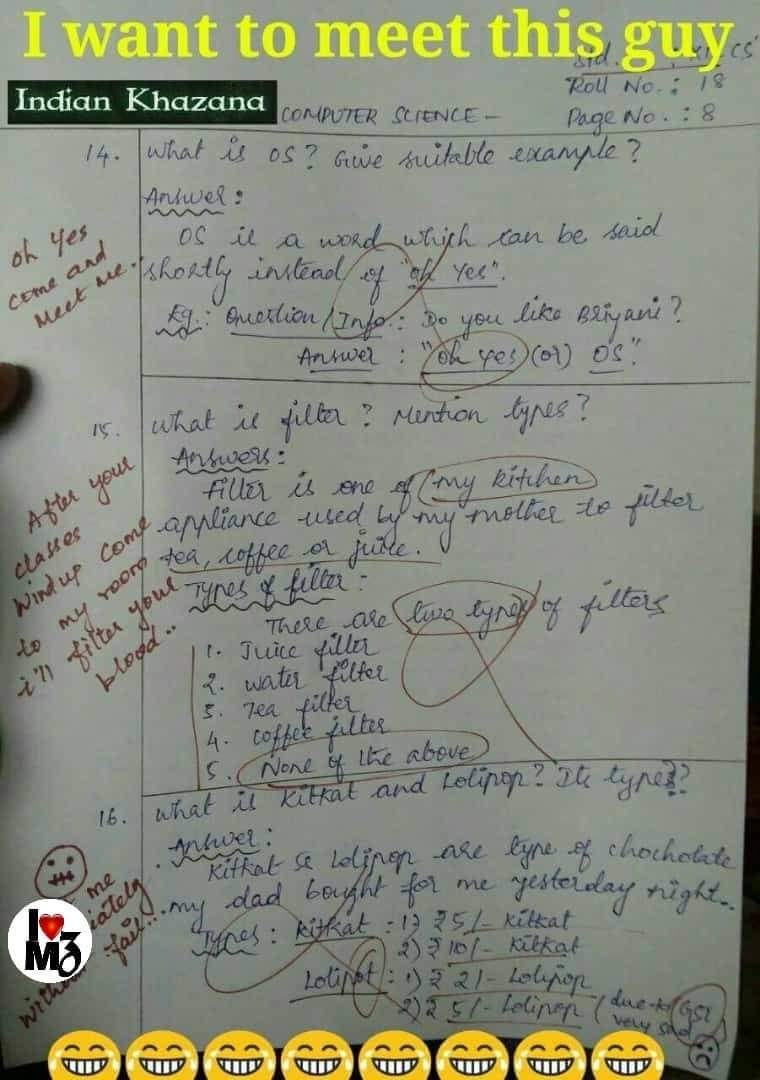 I want to meet this guy
Std. : XI CS
Indian Khazana
Roll No. : 18
COMPUTER SCIENCE -
Page No. : 8
14. What is OS? Give suitable example?
Answer :
OS is a word which can be said
shortly instead of "oh Yes".
Eg.: Question/Info.: Do you like Briyani?
Answer : "oh yes (or) OS".
oh Yes
come and
Meet me.
15. What is filter? Mention types?
Answers:
Filter is one of my kitchen
appliance used by my mother to filter
tea, coffee or juice.
Types of filter :
There are two types of filters
1. Juice filter
2. water filter
3. Tea filter
4. coffee filter
5. None of the above
After your
classes
windup come
to my room
i'll filter your
blood..
16. What is Kitkat and Lolipop? Its types?
Answer:
Kitkat & Lolipop are type of chocholate
my dad bought for me yesterday night..
Types : Kitkat : 1) ₹ 5/- Kitkat
2) ₹ 10/- Kitkat
Lolipot : 1) ₹ 2/- Lolipop
2) ₹ 5/- Lolipop (due to GST
very sad
me
without fail...
I ❤ M3